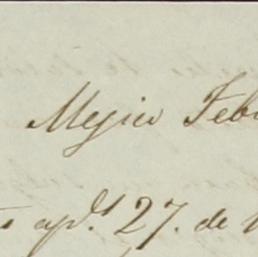 Mejico Feb
apd.s 27. de